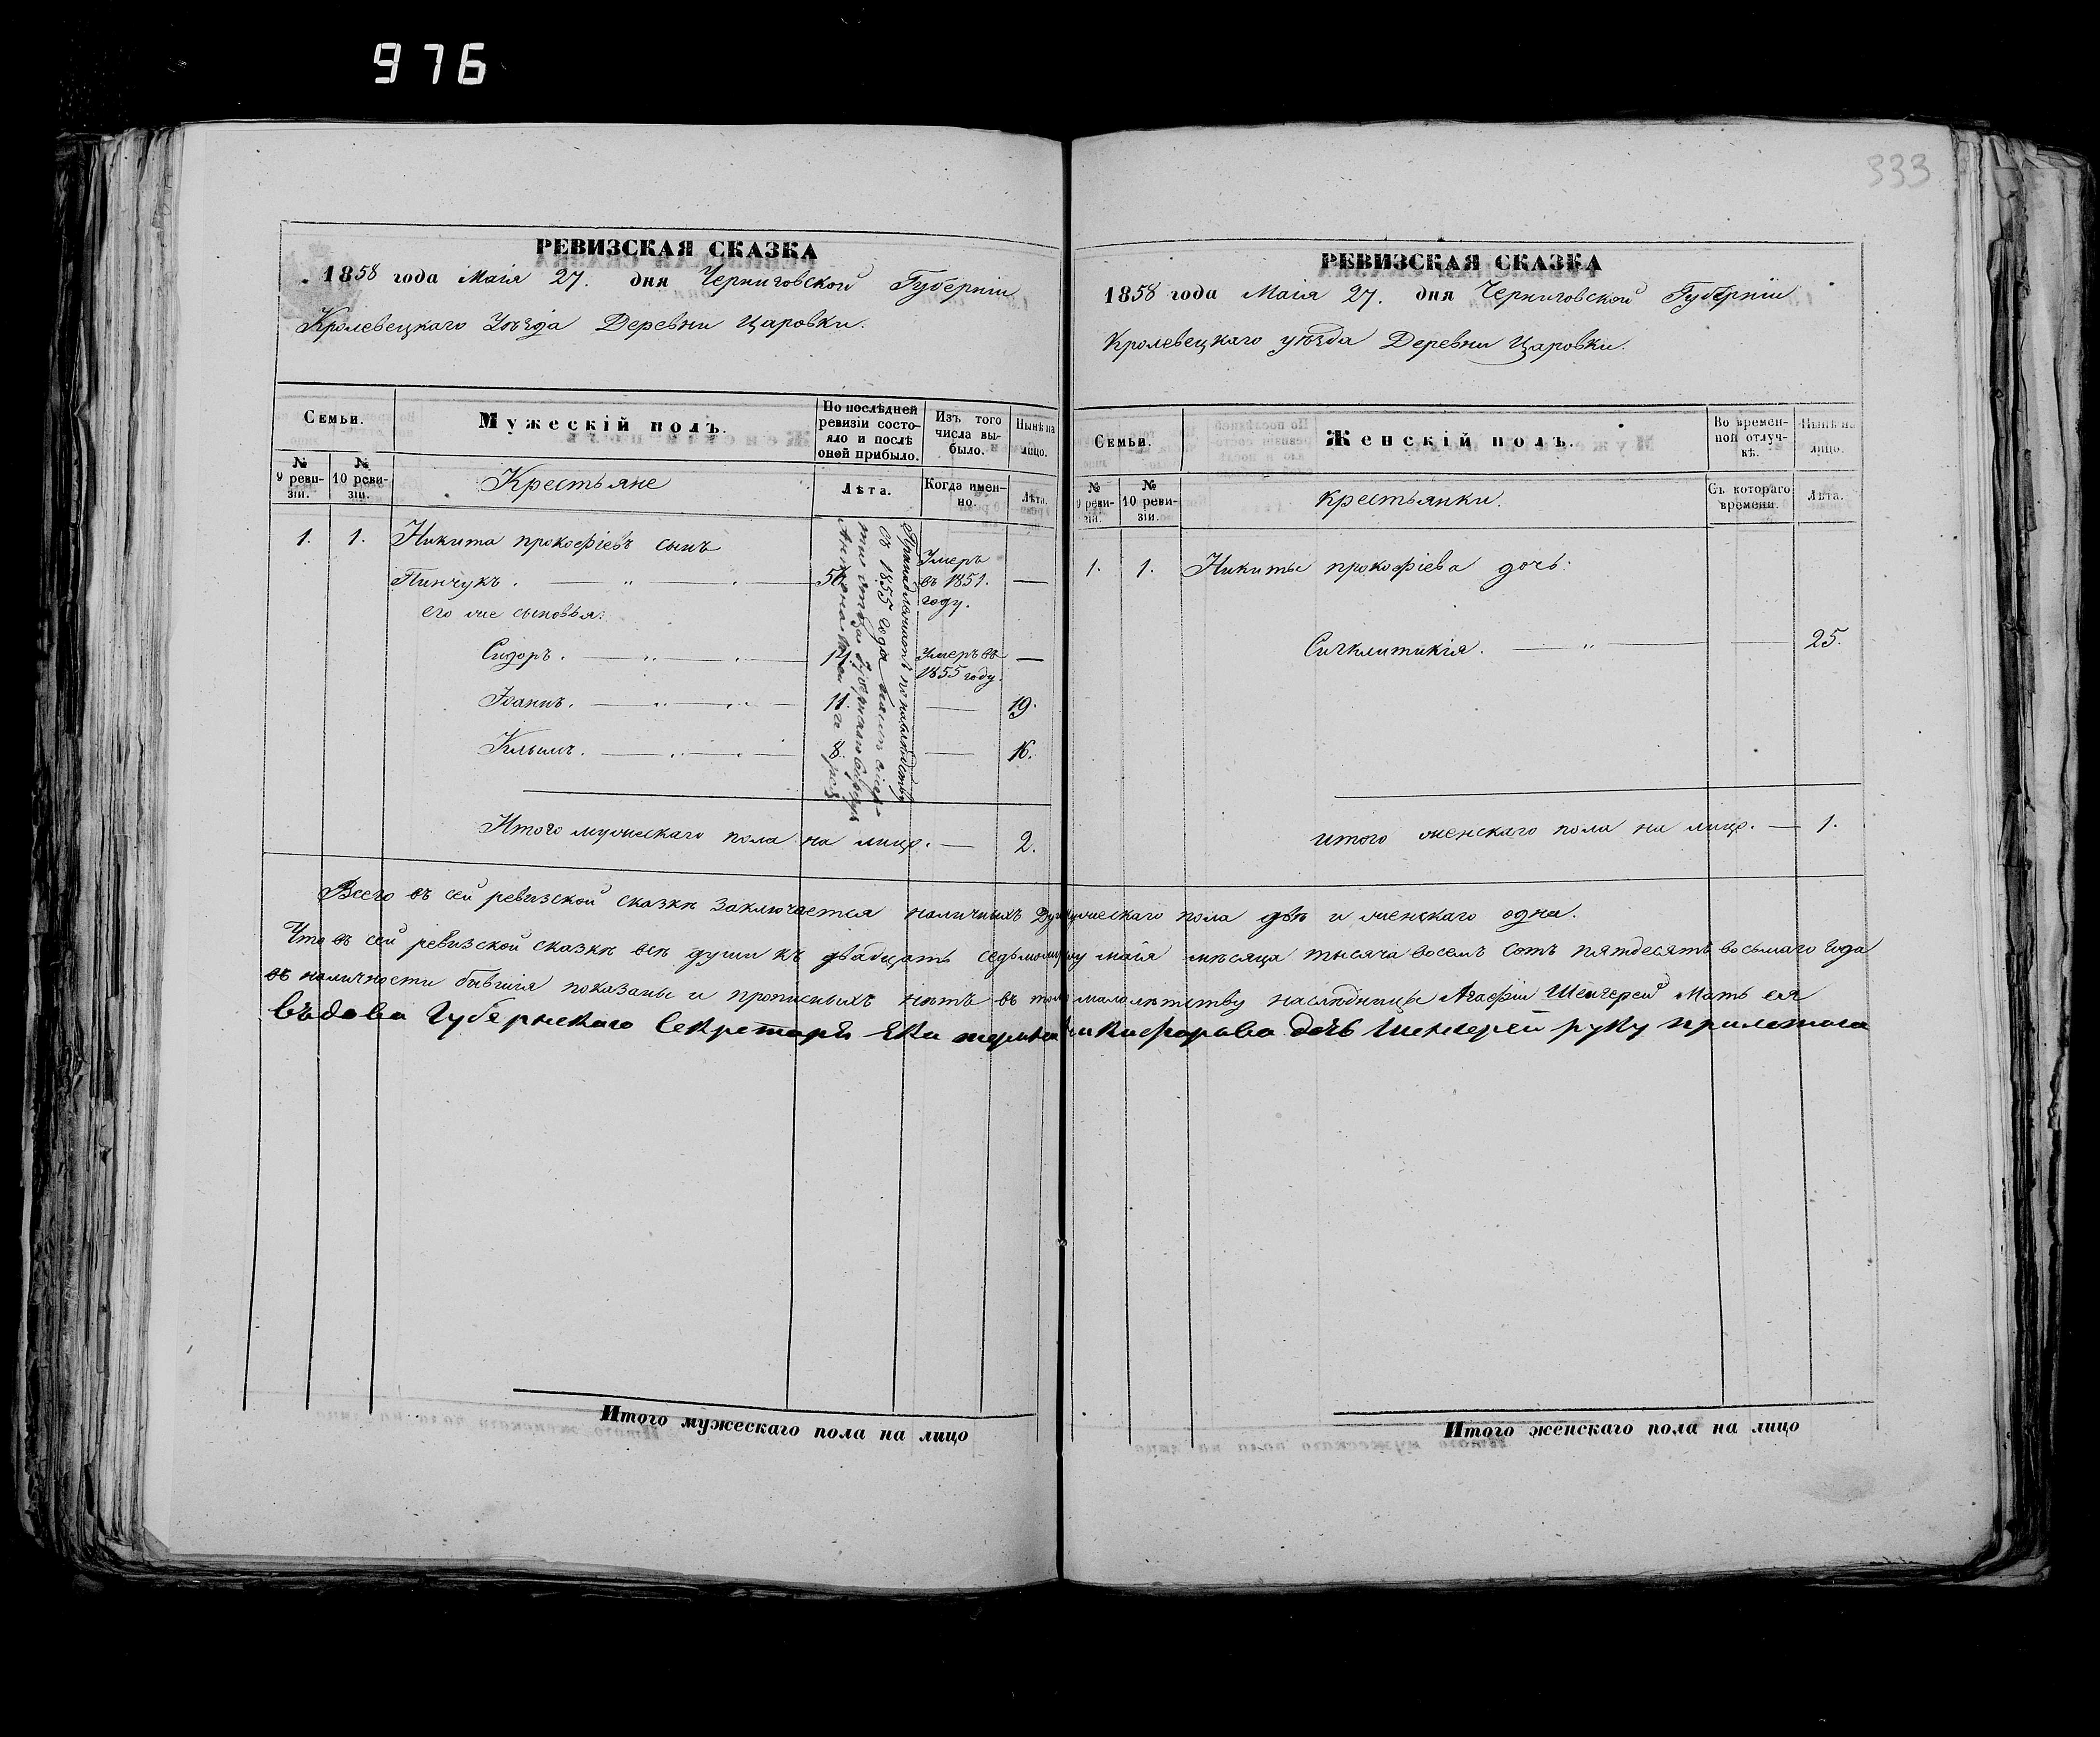 976
333
РЕВИЗСКАЯ СКАЗКА
1858 года Маія 27. дня Черниговской Губерніи
Кролевецкаго Уѣзда Деревни Царовки.
Семьи.
Мужескій полъ.
По послѣдней ревизіи состояло и послѣ оной прибыло.
Изъ того числа выбыло.
Нынѣ на лицо.
№ 9 ревизіи.
№ 10 ревизіи.
Крестьяне
Лѣта.
Когда именно.
Лѣта.
1. 1. Никита прокофіевъ сынъ
Пинчукъ. 50 Умеръ въ 1851. году. —
его же сыновья:
Сидоръ. 14 Умеръ въ 1855 году. —
Іоаннъ. 11. — 19.
Климъ. 8 — 16.
Принадлежитъ по наслѣдству
съ 1855 года
Итого мужескаго пола на лицо. — 2.
РЕВИЗСКАЯ СКАЗКА
1858 года Маія 27. дня Черниговской Губерніи
Кролевецкаго уѣзда Деревни Царовки.
Семьи.
Женскій полъ.
Во временной отлучкѣ.
Нынѣ на лицо.
№ 9 ревизіи.
№ 10 ревизіи.
Крестьянки.
Съ котораго времени.
Лѣта.
1. 1. Никиты прокофіева дочь:
Синклитикія. — 25.
итого женскаго пола на лицо. — 1.
Всего въ сей ревизской сказкѣ заключается наличныхъ Душъ мужескаго пола двѣ и женскаго одна.
Что въ сей ревизской сказкѣ всѣ души къ двадцать седьмому маія мѣсяца тысяча восемъ сотъ пятдесятъ восьмаго года
въ наличности бывшія показаны и прописныхъ нѣтъ въ томъ малолѣтству наслѣдницы Агафіи Шенгерей Мать ея
въдова Губернскаго Секретаря дочь Шенгерей руку приложила
Итого мужескаго пола на лицо
Итого женскаго пола на лицо